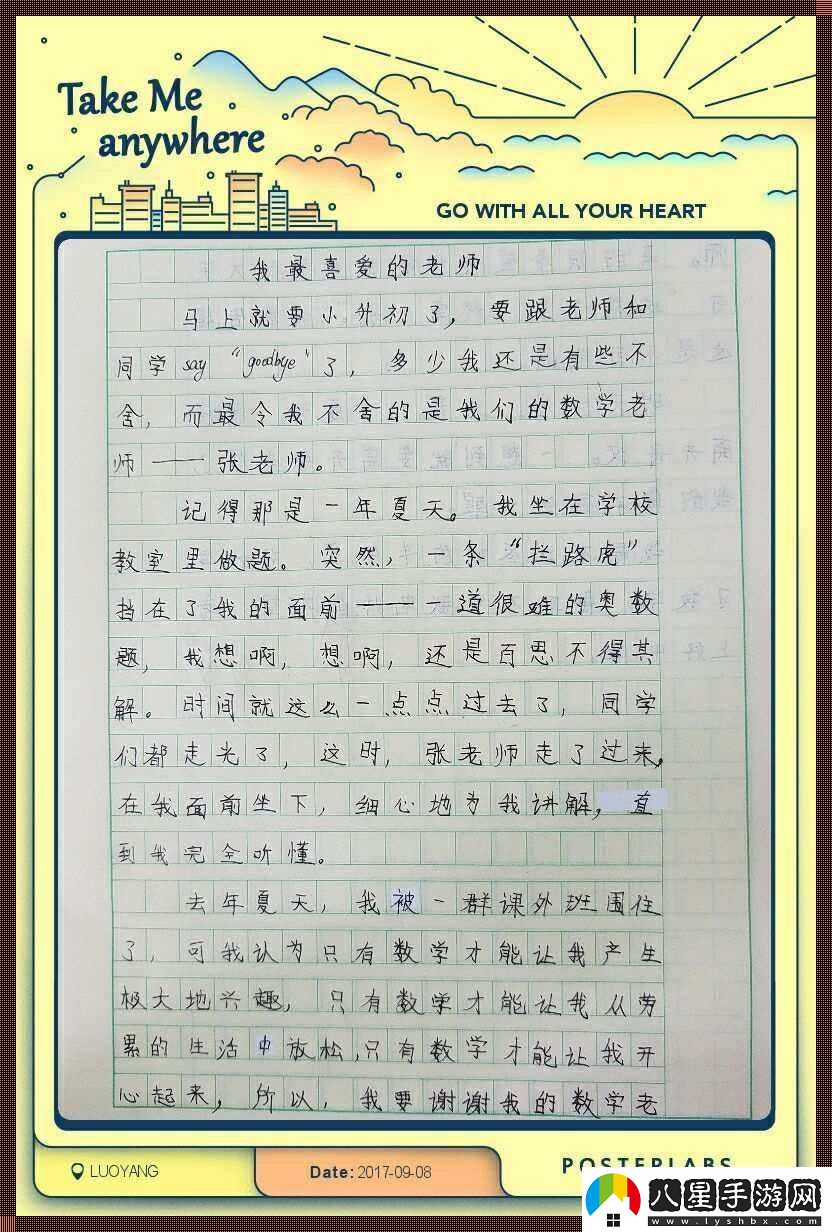 Take Me
anywhere
GO WITH ALL YOUR HEART
我最喜爱的老师
马上就要小升初了，要跟老师和
同学say“goodbye”了，多少我还是有些不
舍，而最令我不舍的是我们的数学老
师——张老师。
记得那是一年夏天。我坐在学校
教室里做题。突然，一条“拦路虎”
挡在了我的面前——一道很难的奥数
题，我想啊，想啊，还是百思不得其
解。时间就这么一点点过去了，同学
们都走光了，这时，张老师走了过来，
在我面前坐下，细心地为我讲解，直
到我完全听懂。
去年夏天，我被一群课外班围住
了，可我认为只有数学才能让我产生
极大地兴趣，只有数学才能让我从劳
累的生活中放松，只有数学才能让我开
心起来，所以，我要谢谢我的数学老
LUOYANG
Date: 2017-09-08
POSTERLABS
八星手游网
www.lyshbx.com